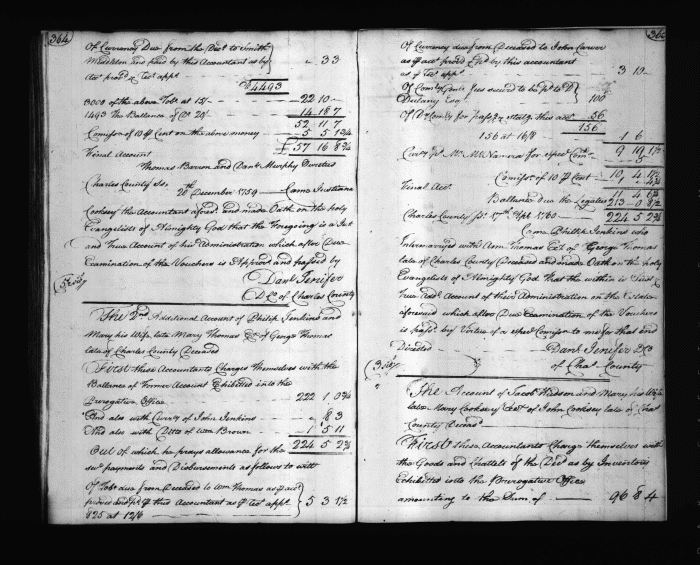 364
Of Currency Due from the Decd to Smith
Middleton and paid by this Accountant as by
Acct provd & recd appt " 3 3
4493
3000 of the above Tobo at 15/ - - 22 10 -
1493 The Ballance of Do 20/ - 14 18 7
52 11 7
Comison of 10 ⅌ Cent on the above money - 5 5 1¾
Final Account £ 57 16 8¾
Thomas Barron and Danl Murphy Sureties
Charles County Ss. 20th December 1759 — Came Justinian
Cooksey the Accountant aforesd and made Oath on the holy
Evangelists of Almighty God that the foregoing is a Just
and True Account of his Administration which after Due
Examination of the Vouchers is Approved and passed by
Danl Jenifer
D Co of Charles County
The 2nd Additional Account of Philip Jenkins and
Mary his Wife, late Mary Thomas Ex of George Thomas
late of Charles County Deceased
First these Accountants Charges Themselves with the
Ballance of Former Account Exhibitted into the
Prerogative Office - - 222 1 0¾
And also with Curry of John Jenkins - " 8 3
And also with Ditto of Wm Brown - 1 5 11
224 5 2¾
Out of which he prays allowance for the
sevl payments and Disbursements as follows to witt
Of Tobo due from Deceased to Wm Thomas as ⅌ acct
proved and pd ⅌ this Accountant as ⅌ recd appt
825 at 12/6 5 3 1½
Of Currency due from Deceased to John Carver
as ⅌ acct proved & pd by this accountant
as ⅌ recd appt 3 10 -
Dulany Esqr 100
56
156
156 at 16/8 1 6
9 19 1½
Comison of 10 ⅌ Cent
Final Acct
Ballance due the Legatees 213 - 0 8½
224 5 2¾
Charles County Ss. 17th Sept 1760
Came Phillip Jenkins who
Intermarried with Ann Thomas Ex of George Thomas
late of Charles County Deceased and made Oath on the holy
Evangelists of Almighty God that the within is Just &
True Addl Account of their Administration on the Estate
aforesaid which after Due Examination of the Vouchers
is passed by Vertue of a special Comison to me for that end
Directed — Danl Jenifer D Co
of Chas County
The Account of Jacob Hudson and Mary his Wife
late Mary Cooksey Ex of John Cooksey late of Chas
County Decead
First these Accountants Charge themselves with
the Goods and Chattels of the Decd as by Inventory
Exhibitted into the Prerogative Office
amounting to the Sum of — 96 8 4